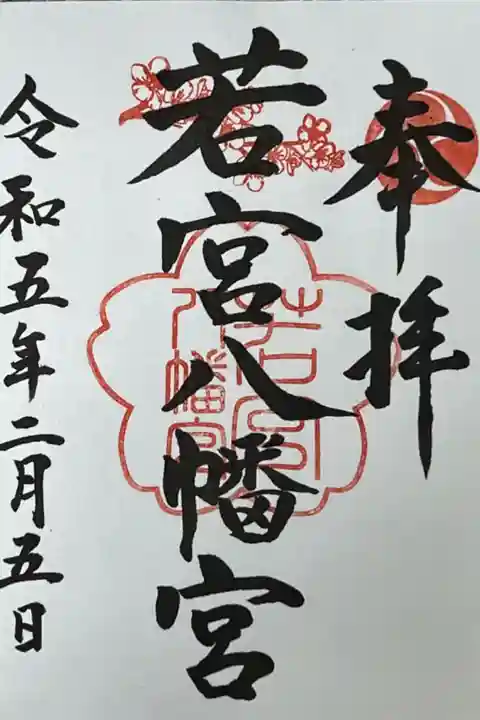 奉拝
若宮八幡宮
若宮
八幡宮
令和五年二月五日